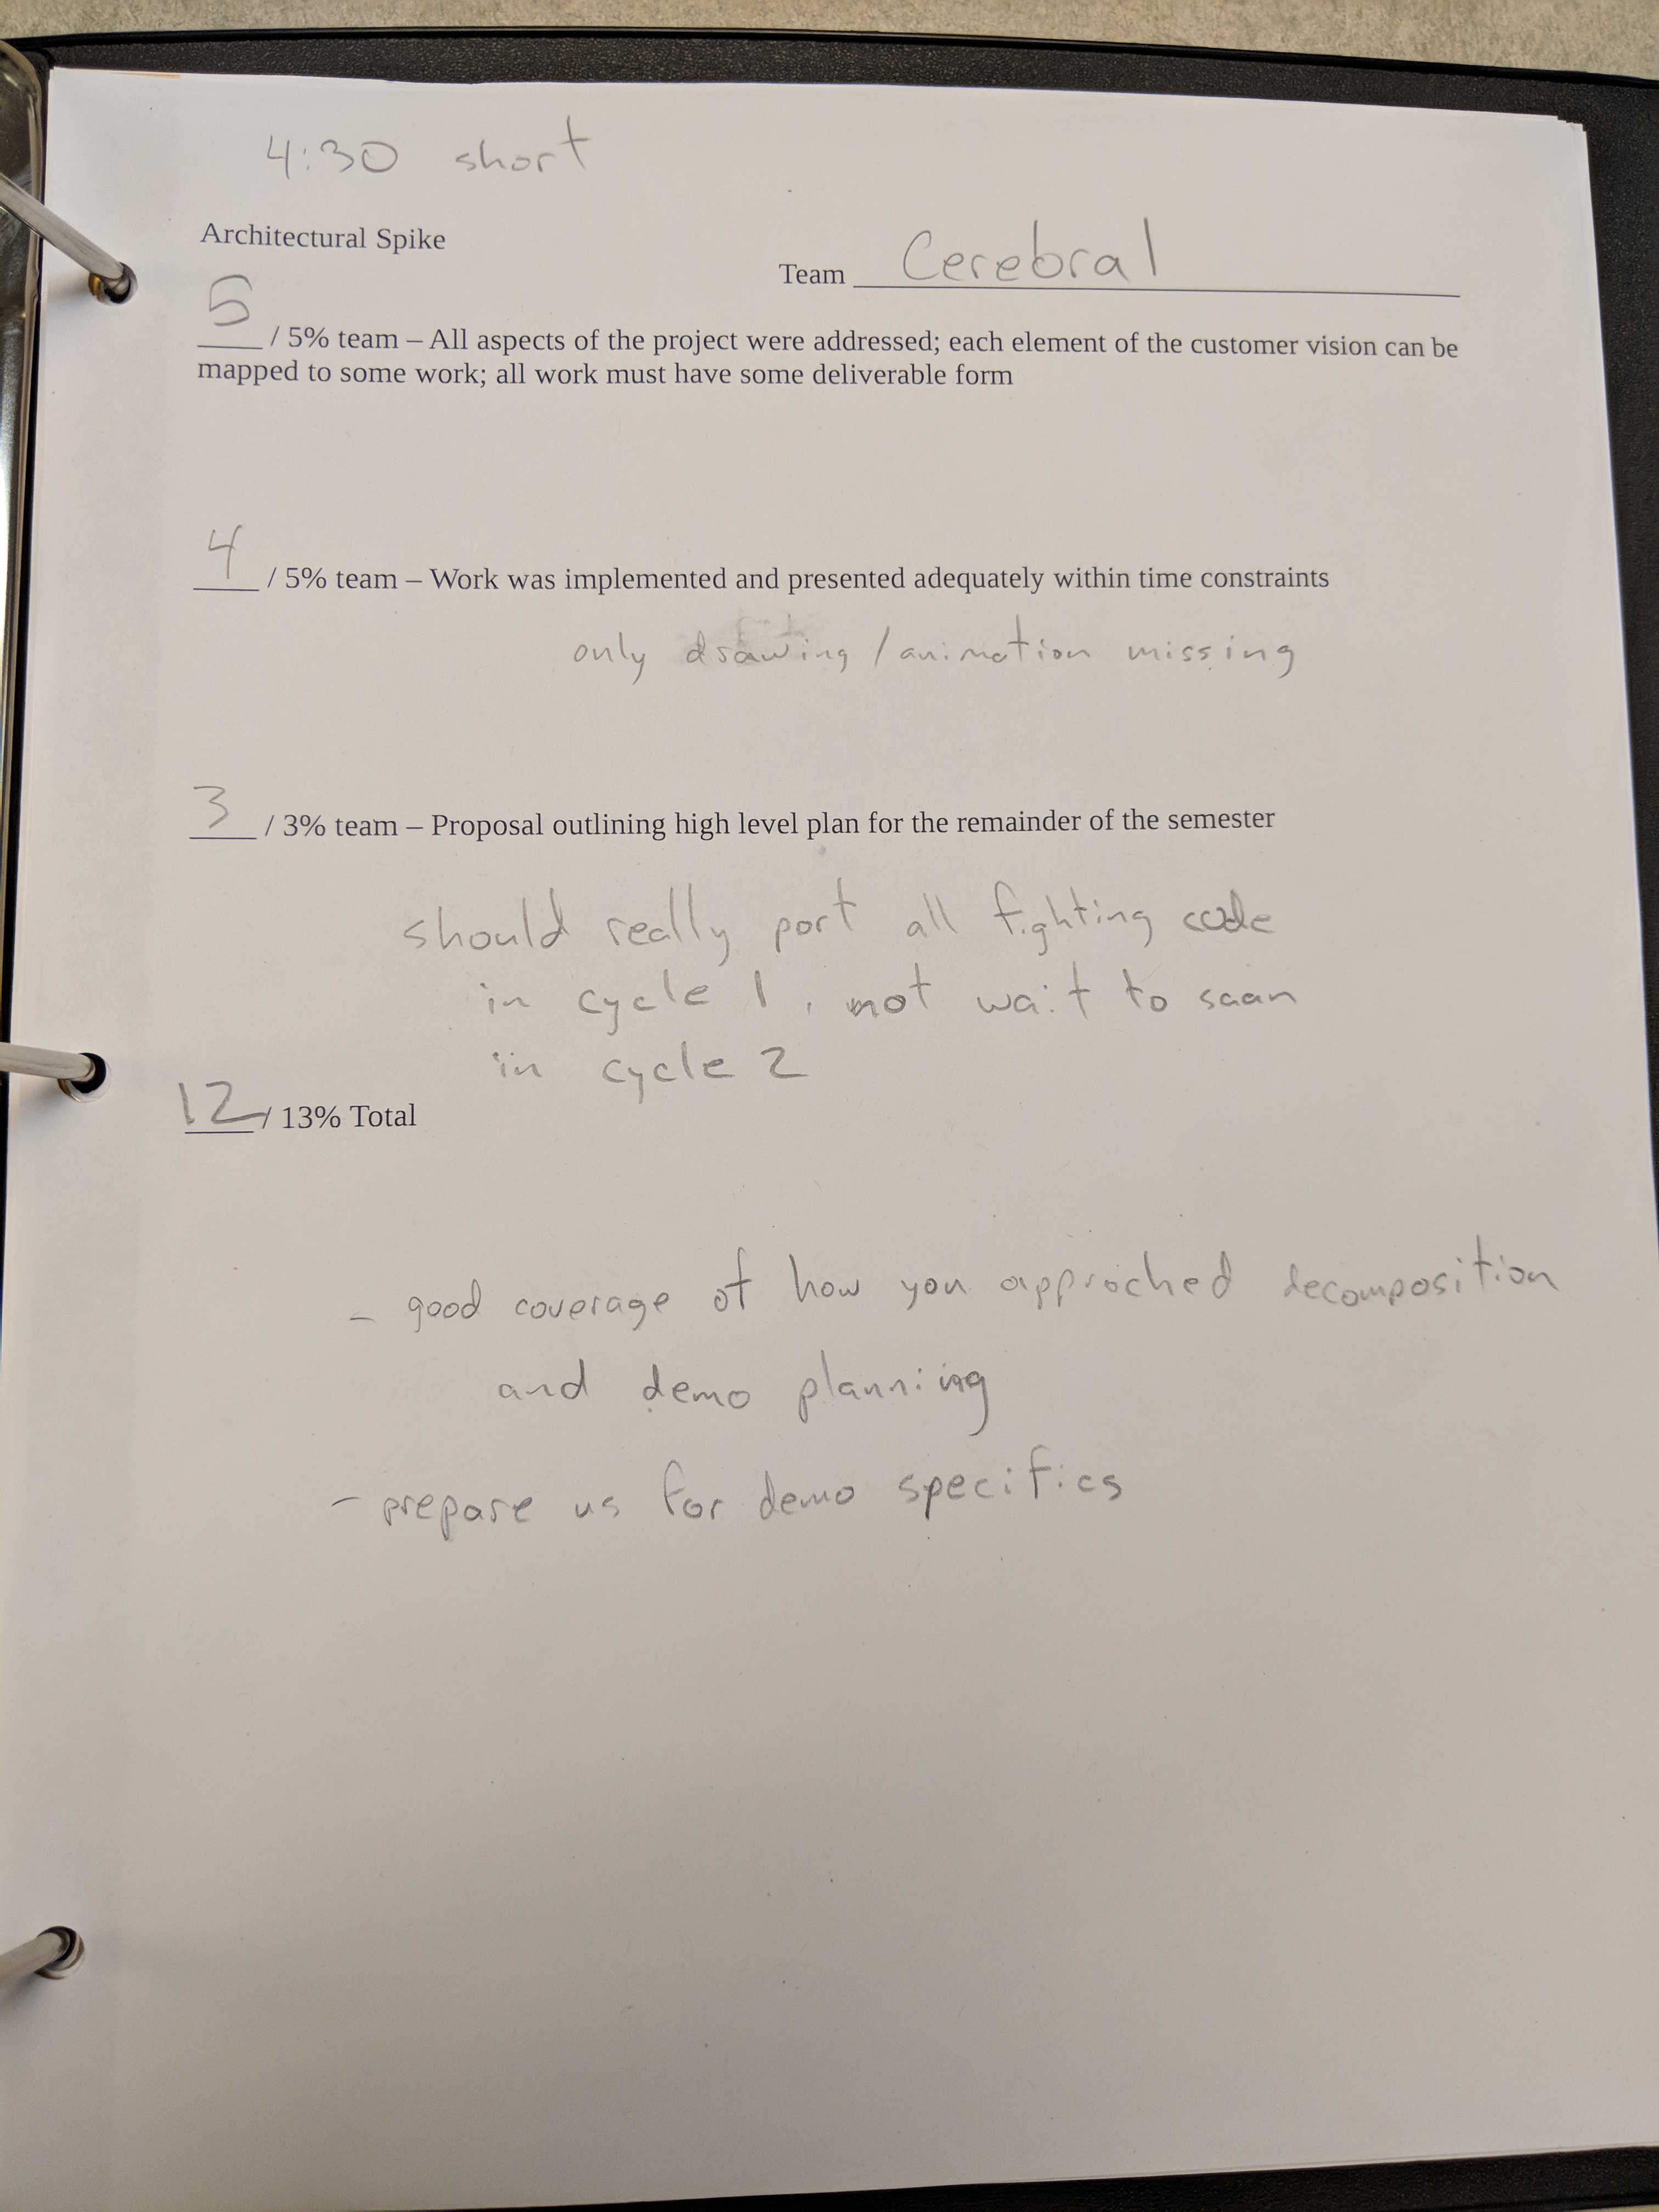 4:30 short
Architectural Spike
Team Cerebral
5 / 5% team – All aspects of the project were addressed; each element of the customer vision can be
mapped to some work; all work must have some deliverable form
4 / 5% team – Work was implemented and presented adequately within time constraints
only drawing / animation missing
3 / 3% team – Proposal outlining high level plan for the remainder of the semester
should really port all fighting code
in cycle 1, not wait to
in cycle 2
12 / 13% Total
- good coverage of how you approched decomposition
and demo planning
- prepare us for demo specifics